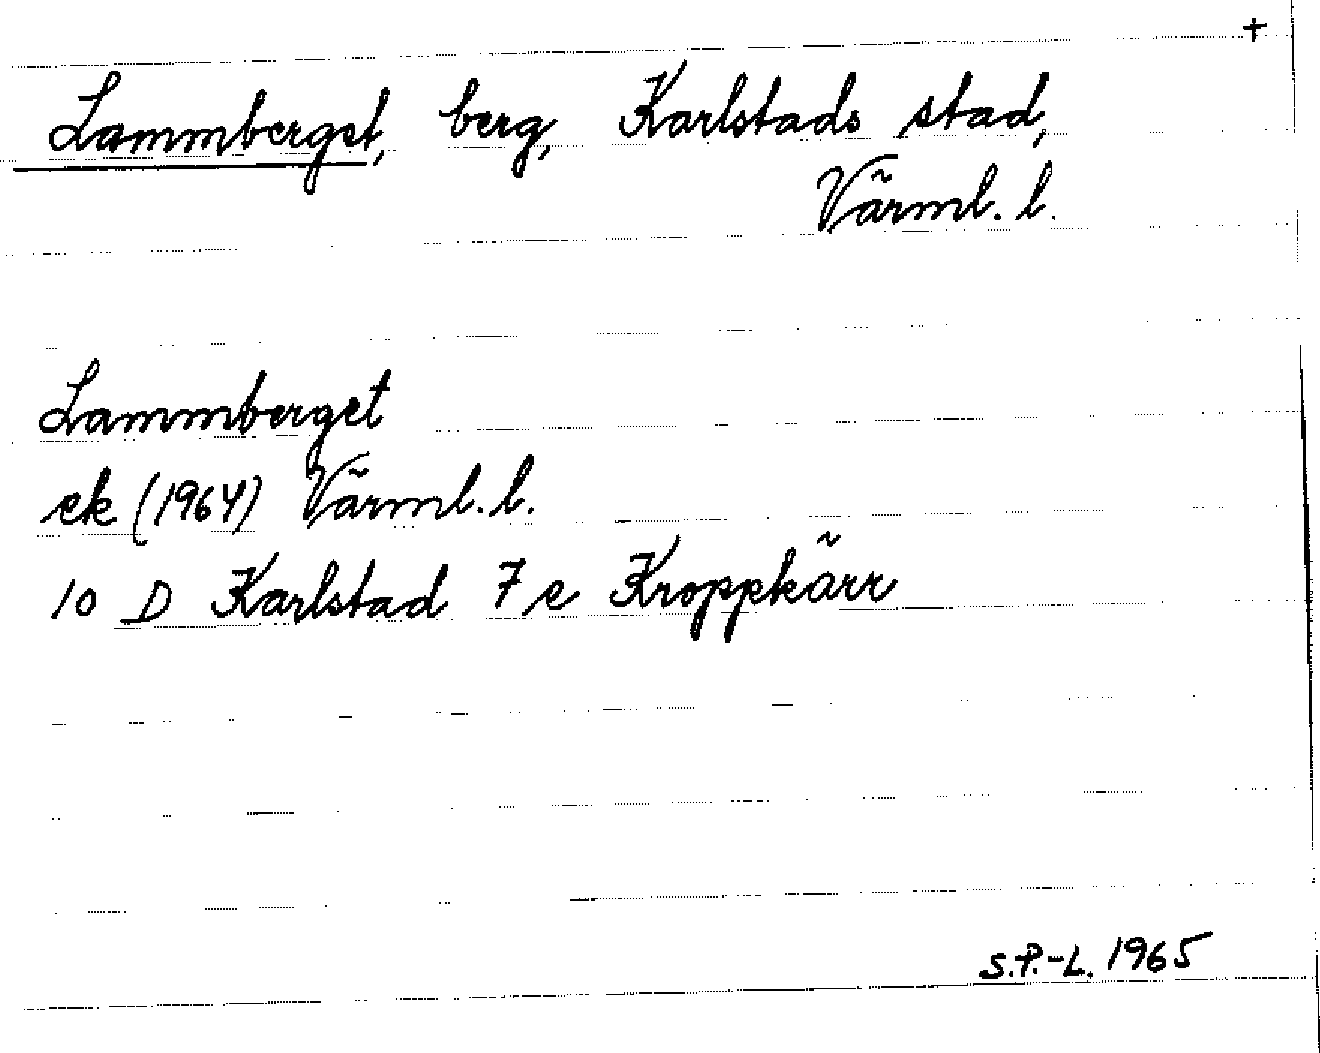 +
Lammberget, berg, Karlstads stad,
Värml. l.
Lammberget
ek (1964) Värml. l.
10 D Karlstad 7 e Kroppkärr
S.P.-L. 1965